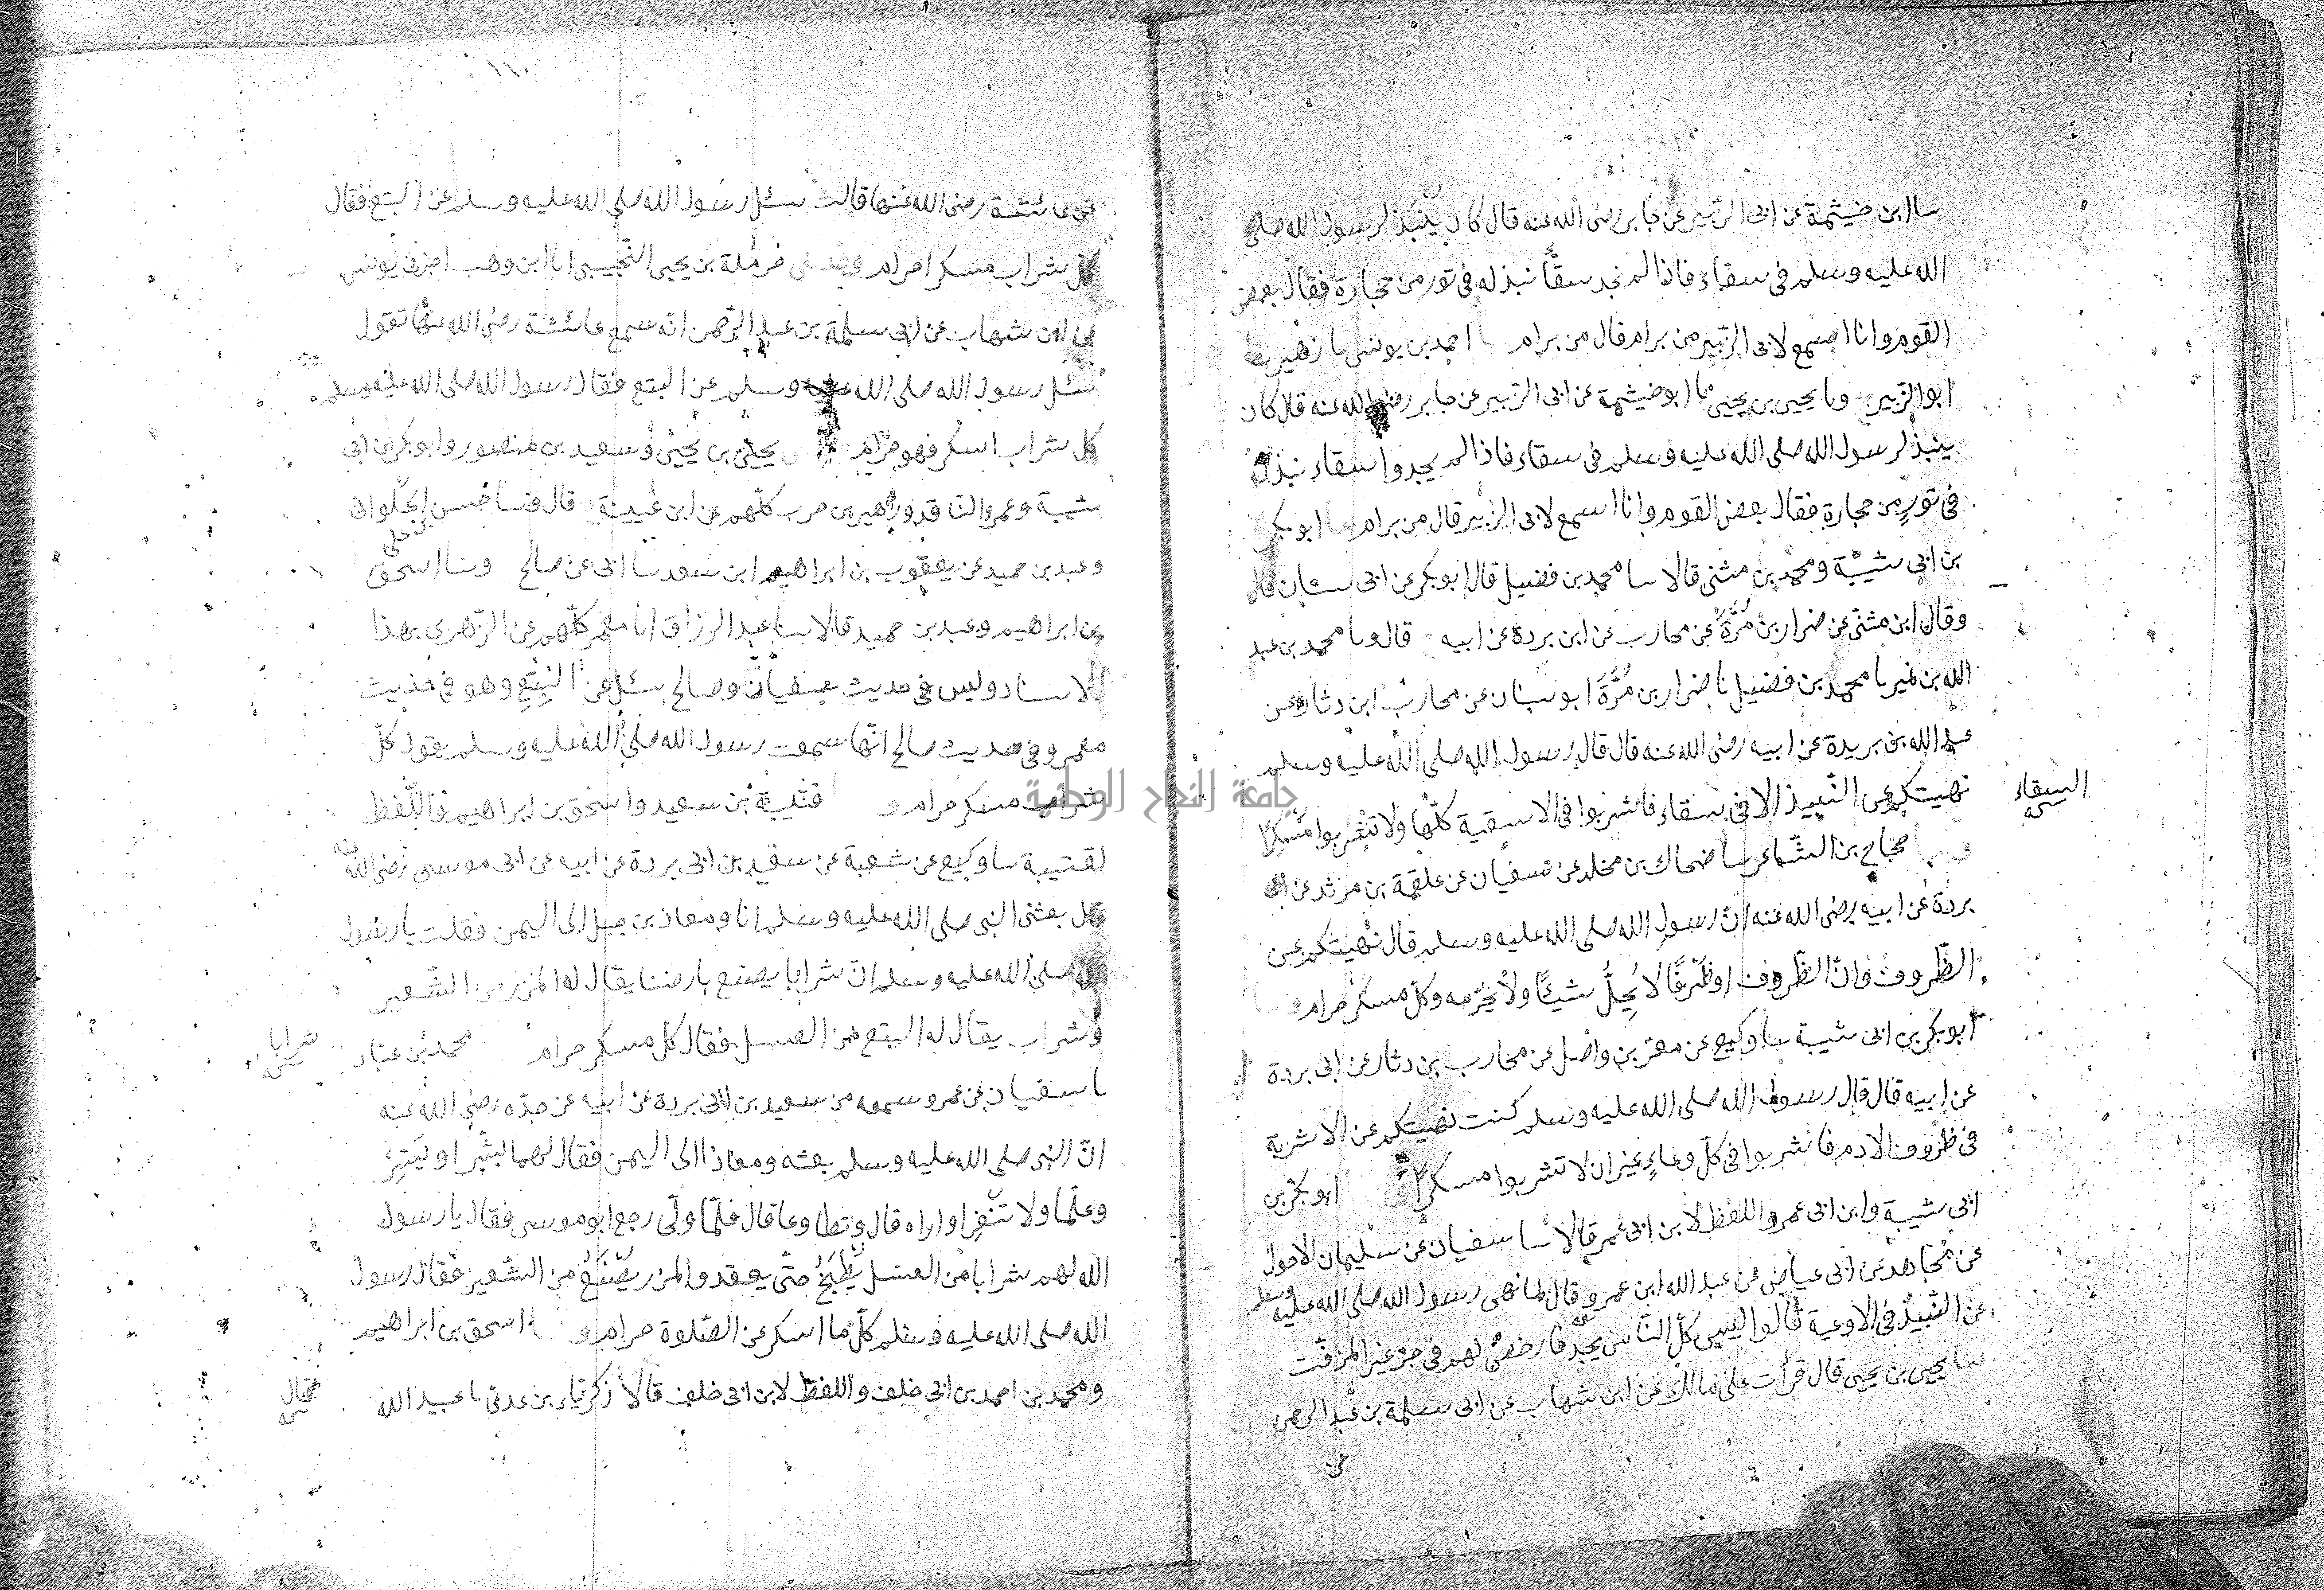 سا ابن خيثمة عن ابى الزّبير عن جابر رضى الله عنه قال كان يُنْبَذَ لرسول الله صلى
الله عليه وسلم فى سقاء فاذا لم نجد سقاً نبذ له فى تور من حجارة فقال بعض
القوم وانا اسمع لابى الزّبير من برام قال من برام احمد بن يونس نا زهير نا
ابو الزّبير ونا يحيى بن يحيى نا ابو خيثمة عن ابى الزّبير عن جابر رضى الله عنه قال كان
ينبذ لرسول الله صلى الله عليه وسلم فى سقاء فاذا لم يجدوا سقاء نبذ له
فى تورٍ من حجارة فقال بعض القوم وانا اسمع لابى الزّبير قال من برام ابو بكر
بن ابى شيبة ومحمد بن مثنى قالا سا محمد بن فضيل قال ابو بكر عن ابى سنان قال
وقال ابن مثنى عن ضرار بن مُرَّةَ عن محارب عن ابن بردة عن ابيه قال ونا محمد بن عبد
الله بن نمير نا محمد بن فضيل نا ضرار بن مُرَّةَ ابو سنان عن محارب ابن دثار عن
عبد الله بن بريدة عن ابيه رضى الله عنه قال قال رسول الله صلى الله عليه وسلم
نهيتكم عن النّبيذ الا فى سقاء فاشربوا فى الاسقية كلّها ولا تشربوا مسكرًا
السقاء
حجاج بن الشّاعر سا ضحاك بن مخلد عن سفيان عن علقمة بن مرثد عن ابن
بردة عن ابيه رضى الله عنه انّ رسول الله صلى الله عليه وسلم قال نهيتكم عن
الظّروف وانّ الظّروف او ظَرْفًا لا يُحِلُّ شيئًا ولا يحرّمه وكلّ مسكر حرام
ابو بكر بن ابى شيبة سا وكيع عن معرّ بن واصل عن محارب بن دثار عن ابى بردة
عن ابيه قال قال رسول الله صلى الله عليه وسلم كنت نهيتكم عن الاشربة
فى ظروف الادم فاشربوا فى كلّ وعاءٍ غير ان لا تشربوا مسكرًا ابو بكر بن
ابى شيبة وابن ابى عمرو اللفظ لابن ابى عمر قالا سا سفيان عن سليمان الاحول
عن مجاهد عن ابى عياض عن عبد الله ابن عمرو قال لما نهى رسول الله صلى الله عليه وسلم
عن النّبيذ فى الاوعية قالوا ليس كلّ النّاس يجد فارخص لهم فى جرّ غير المزفّت
سا يحيى بن يحيى قال قرأت على مالك عن ابن شهاب عن ابى سلمة بن عبد الرحمن
عن
١١٠
عن عائشة رضى الله عنها قالت سئل رسول الله صلى الله عليه وسلم عن البتع فقال
كل شراب مسكر احرام وحدثنى حرملة بن يحيى التّجيبى انا ابن وهب اخبرنى يونس
عن ابن شهاب عن ابى سلمة بن عبد الرّحمن انّه سمع عائشة رضى الله عنها تقول
سئل رسول الله صلى الله عليه وسلم عن البتع فقال رسول الله صلى الله عليه وسلم
كل شراب اسكر فهو حرام يحيى بن يحيى وسعيد بن منصور وابو بكر بن ابى
شيبة وعمرو النّاقد وزهير بن حرب كلّهم عن ابن عيينة قال ونا حسن الحلوانى
بن على
وعبد بن حميد عن يعقوب بن ابراهيم ابن سعد سا ابى عن صالح وسا اسحق
بن ابراهيم وعبد بن حميد قالا سا عبد الرزاق انا معمر كلّهم عن الزّهرى بهذا
الاسناد وليس فى حديث سفيان وصالح سئل عن البِتْعِ وهو فى حديث
معمر وفى حديث صالح انّها سمعت رسول الله صلى الله عليه وسلم يقول كلّ
شراب مسكر حرام و قتيبة بن سعيد واسحق بن ابراهيم واللّفظ
لقتيبة سا وكيع عن شعبة عن سعيد بن ابى بردة عن ابيه عن ابى موسى رضى الله عنه
قال بعثنى النبى صلى الله عليه وسلم انا ومعاذ بن جبل الى اليمن فقلت يا رسول
الله صلى الله عليه وسلم انّ شرابا يصنع بارضنا يقال له المزر من الشّعير
وشراب يقال له البتع من العسل فقال كلّ مسكر حرام محمد بن عبّاد
شرابا
نا سفيان عن عمرو سمعه من سعيد بن ابى بردة عن ابيه عن جدّه رضى الله عنه
انّ النبى صلى الله عليه وسلم بعثه ومعاذا الى اليمن فقال لهما بشّرا ويَسِّرا
وعلّما ولا تنفّرا واراه قال وتطاوعا قال فلمّا ولّى رجع ابو موسى فقال يا رسول
الله لهم شرابا من العسل يُطْبَخُ حتّى يعقد والمزر يُصْنَعُ من الشّعير فقال رسول
الله صلى الله عليه وسلم كلّ ما اسكر عن الصّلوة حرام و اسحق بن ابراهيم
ومحمد بن احمد بن ابى خلف واللفظ لابن ابى خلف قالا زكرياء بن عدى نا عبيد الله
فقال
جامعة النجاح الوطنية